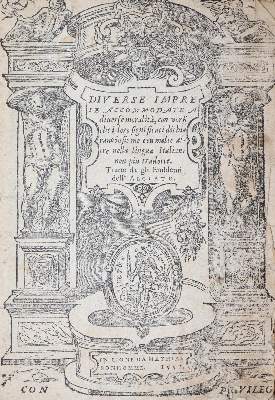 DIVERSE IMPRE
SE ACCOMMODATE A
diuerse moralità, con versi
che i loro significati dichia
rano
nella lingua Italiana
non più tradotte.
Tratte da gli Emblemi
dell'ALCIATO.
IN LIONE DA MATHIAS
BONHOMME
CON PRIVILEG